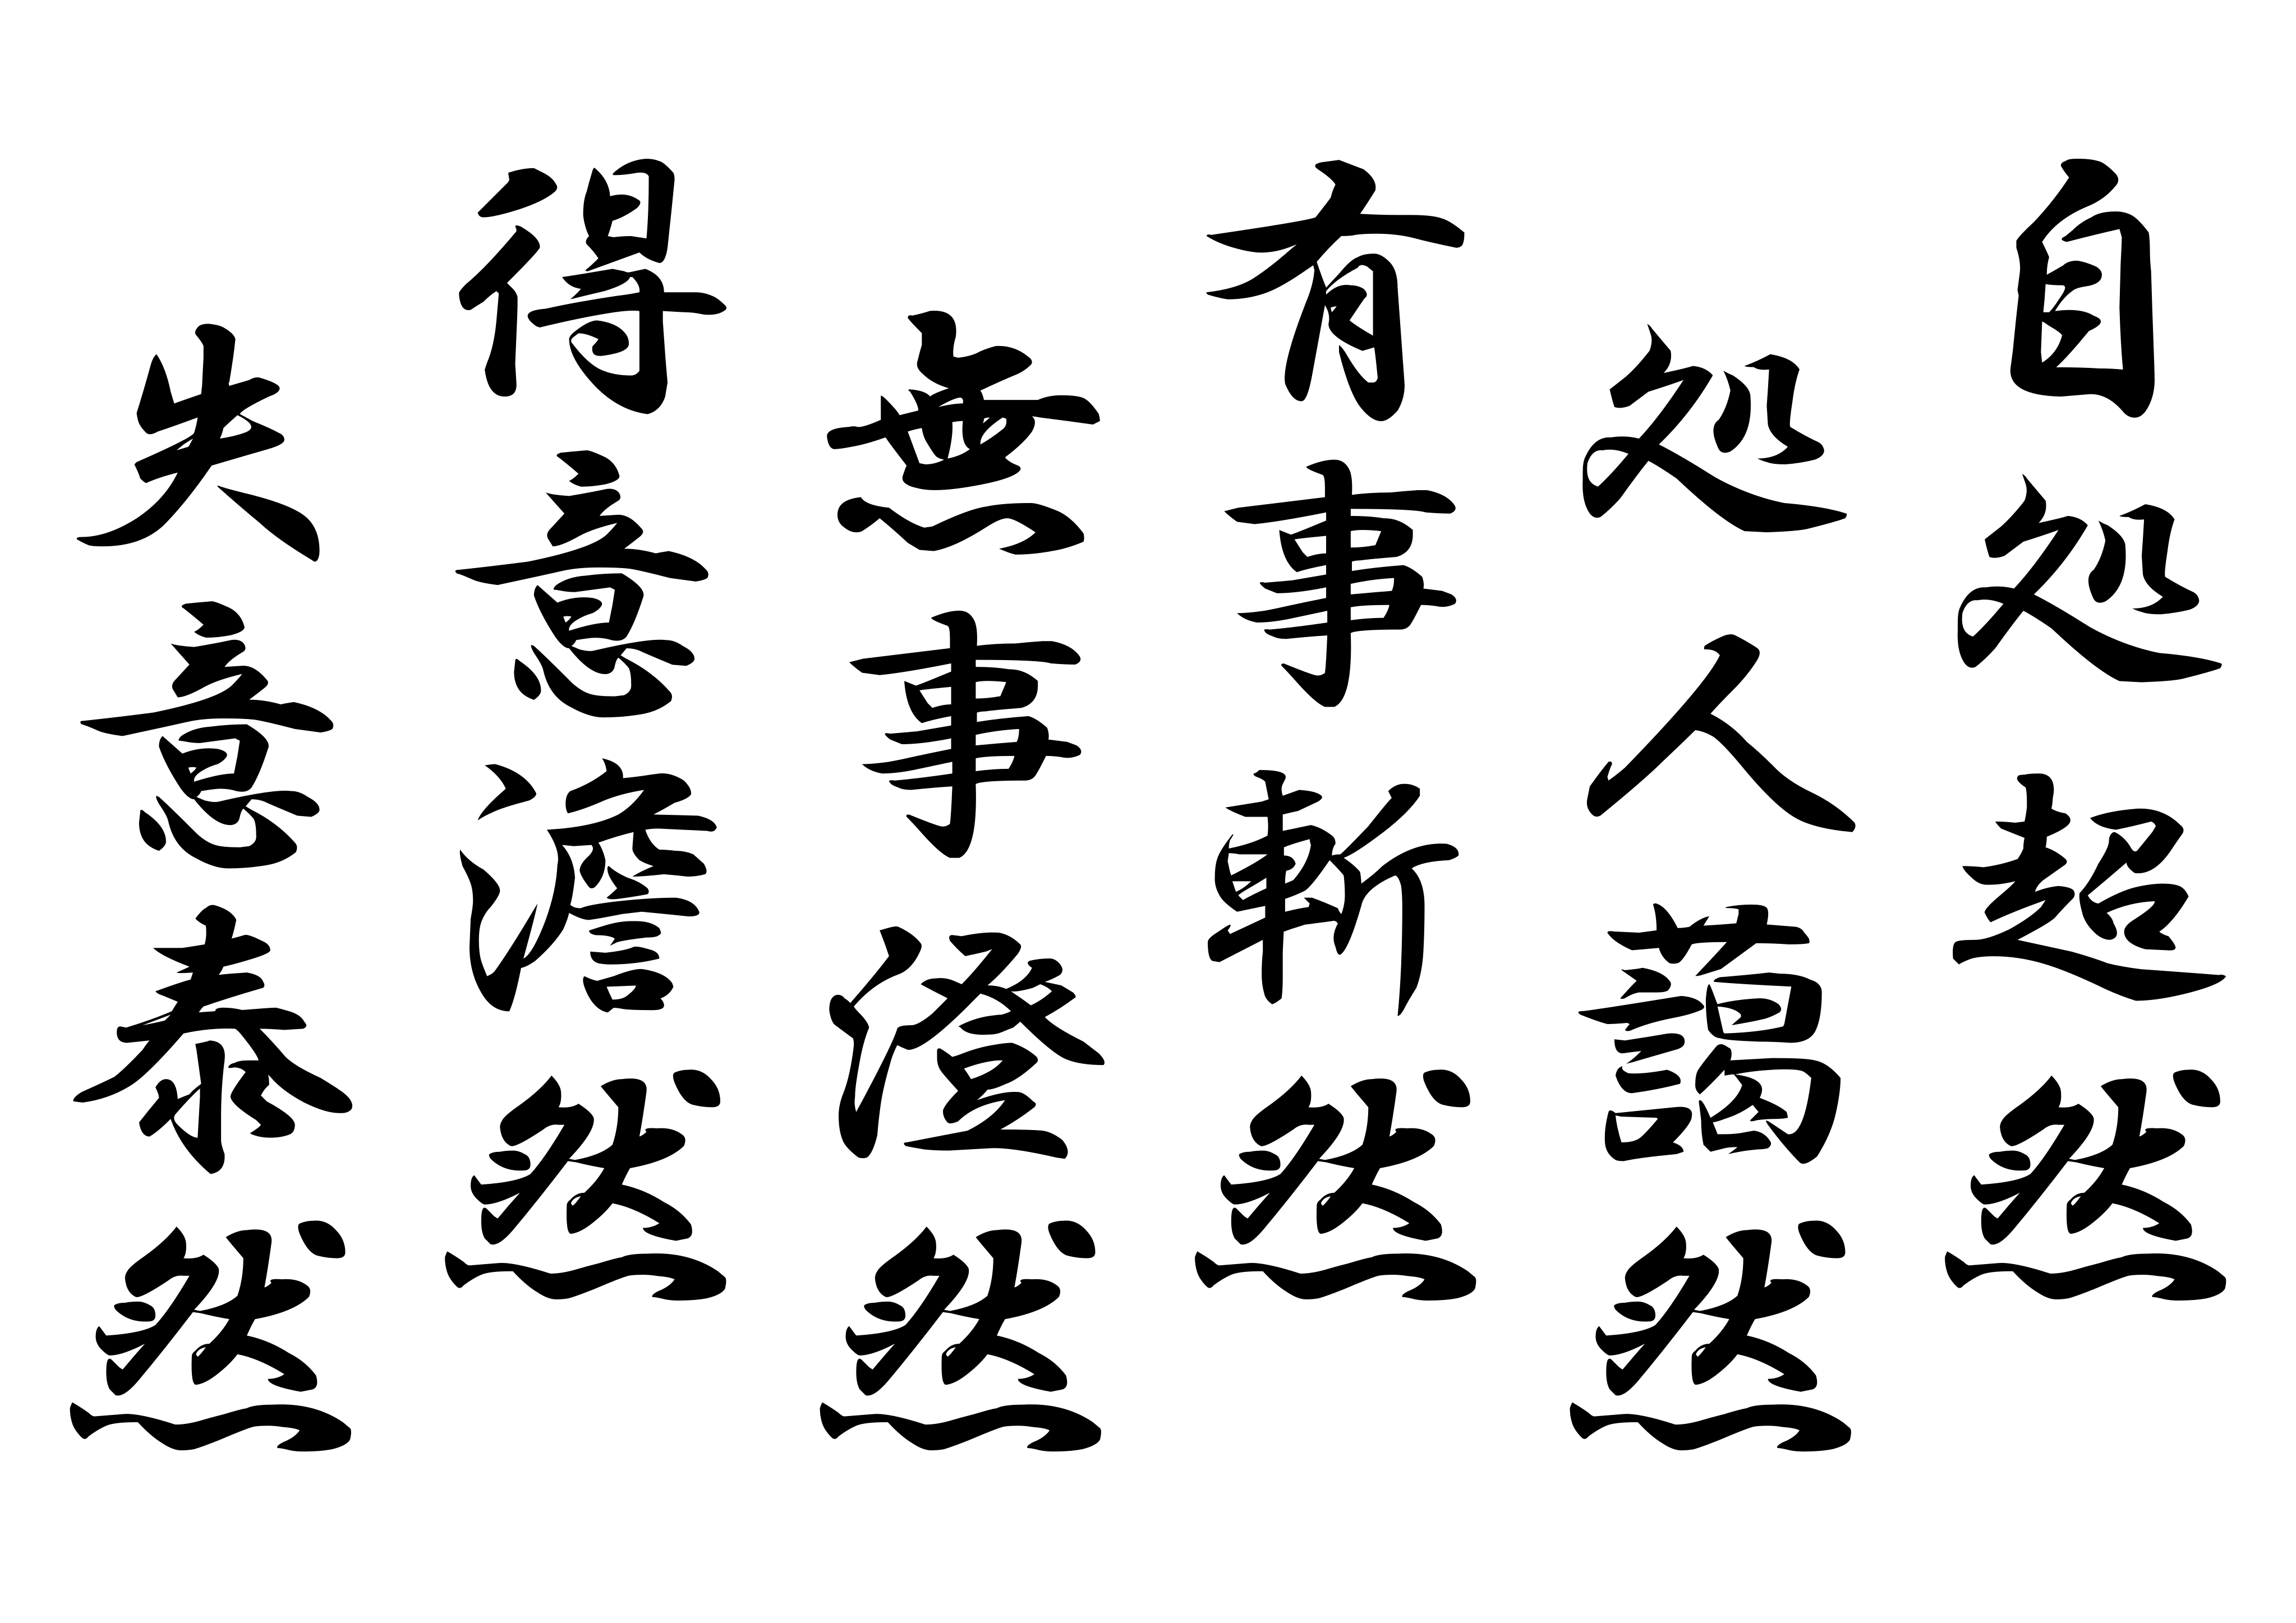 自処超然
処人藹然
有事斬然
無事澄然
得意澹然
失意泰然